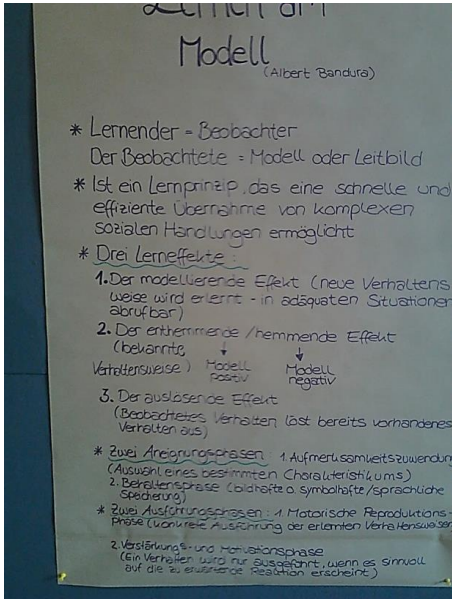 Lernen am
Modell
(Albert Bandura)
* Lernender = Beobachter
Der Beobachtete = Modell oder Leitbild
* Ist ein Lernprinzip, das eine schnelle und
effiziente Übernahme von komplexen
sozialen Handlungen ermöglicht
* Drei Lerneffekte:
1. Der modellierende Effekt (neue Verhaltens
weise wird erlernt - in adäquaten Situationen
abrufbar)
2. Der enthemmende / hemmende Effekt
(bekannte ↓ ↓
Verhaltensweise) Modell Modell
positiv negativ
3. Der auslösende Effekt
(Beobachtetes Verhalten löst bereits vorhandenes
Verhalten aus)
* Zwei Aneignungsphasen: 1. Aufmerksamkeitszuwendung
(Auswahl eines bestimmten Charakteristikums)
2. Behaltensphase (bildhafte o. symbolhafte/sprachliche
Speicherung)
* Zwei Ausführungsphasen: 1. Motorische Reproduktions-
phase (konkrete Ausführung der erlernten Verhaltensweisen
2. Verstärkungs- und Motivationsphase
(Ein Verhalten wird nur ausgeführt, wenn es sinnvoll
auf die zu erwartende Reaktion erscheint)